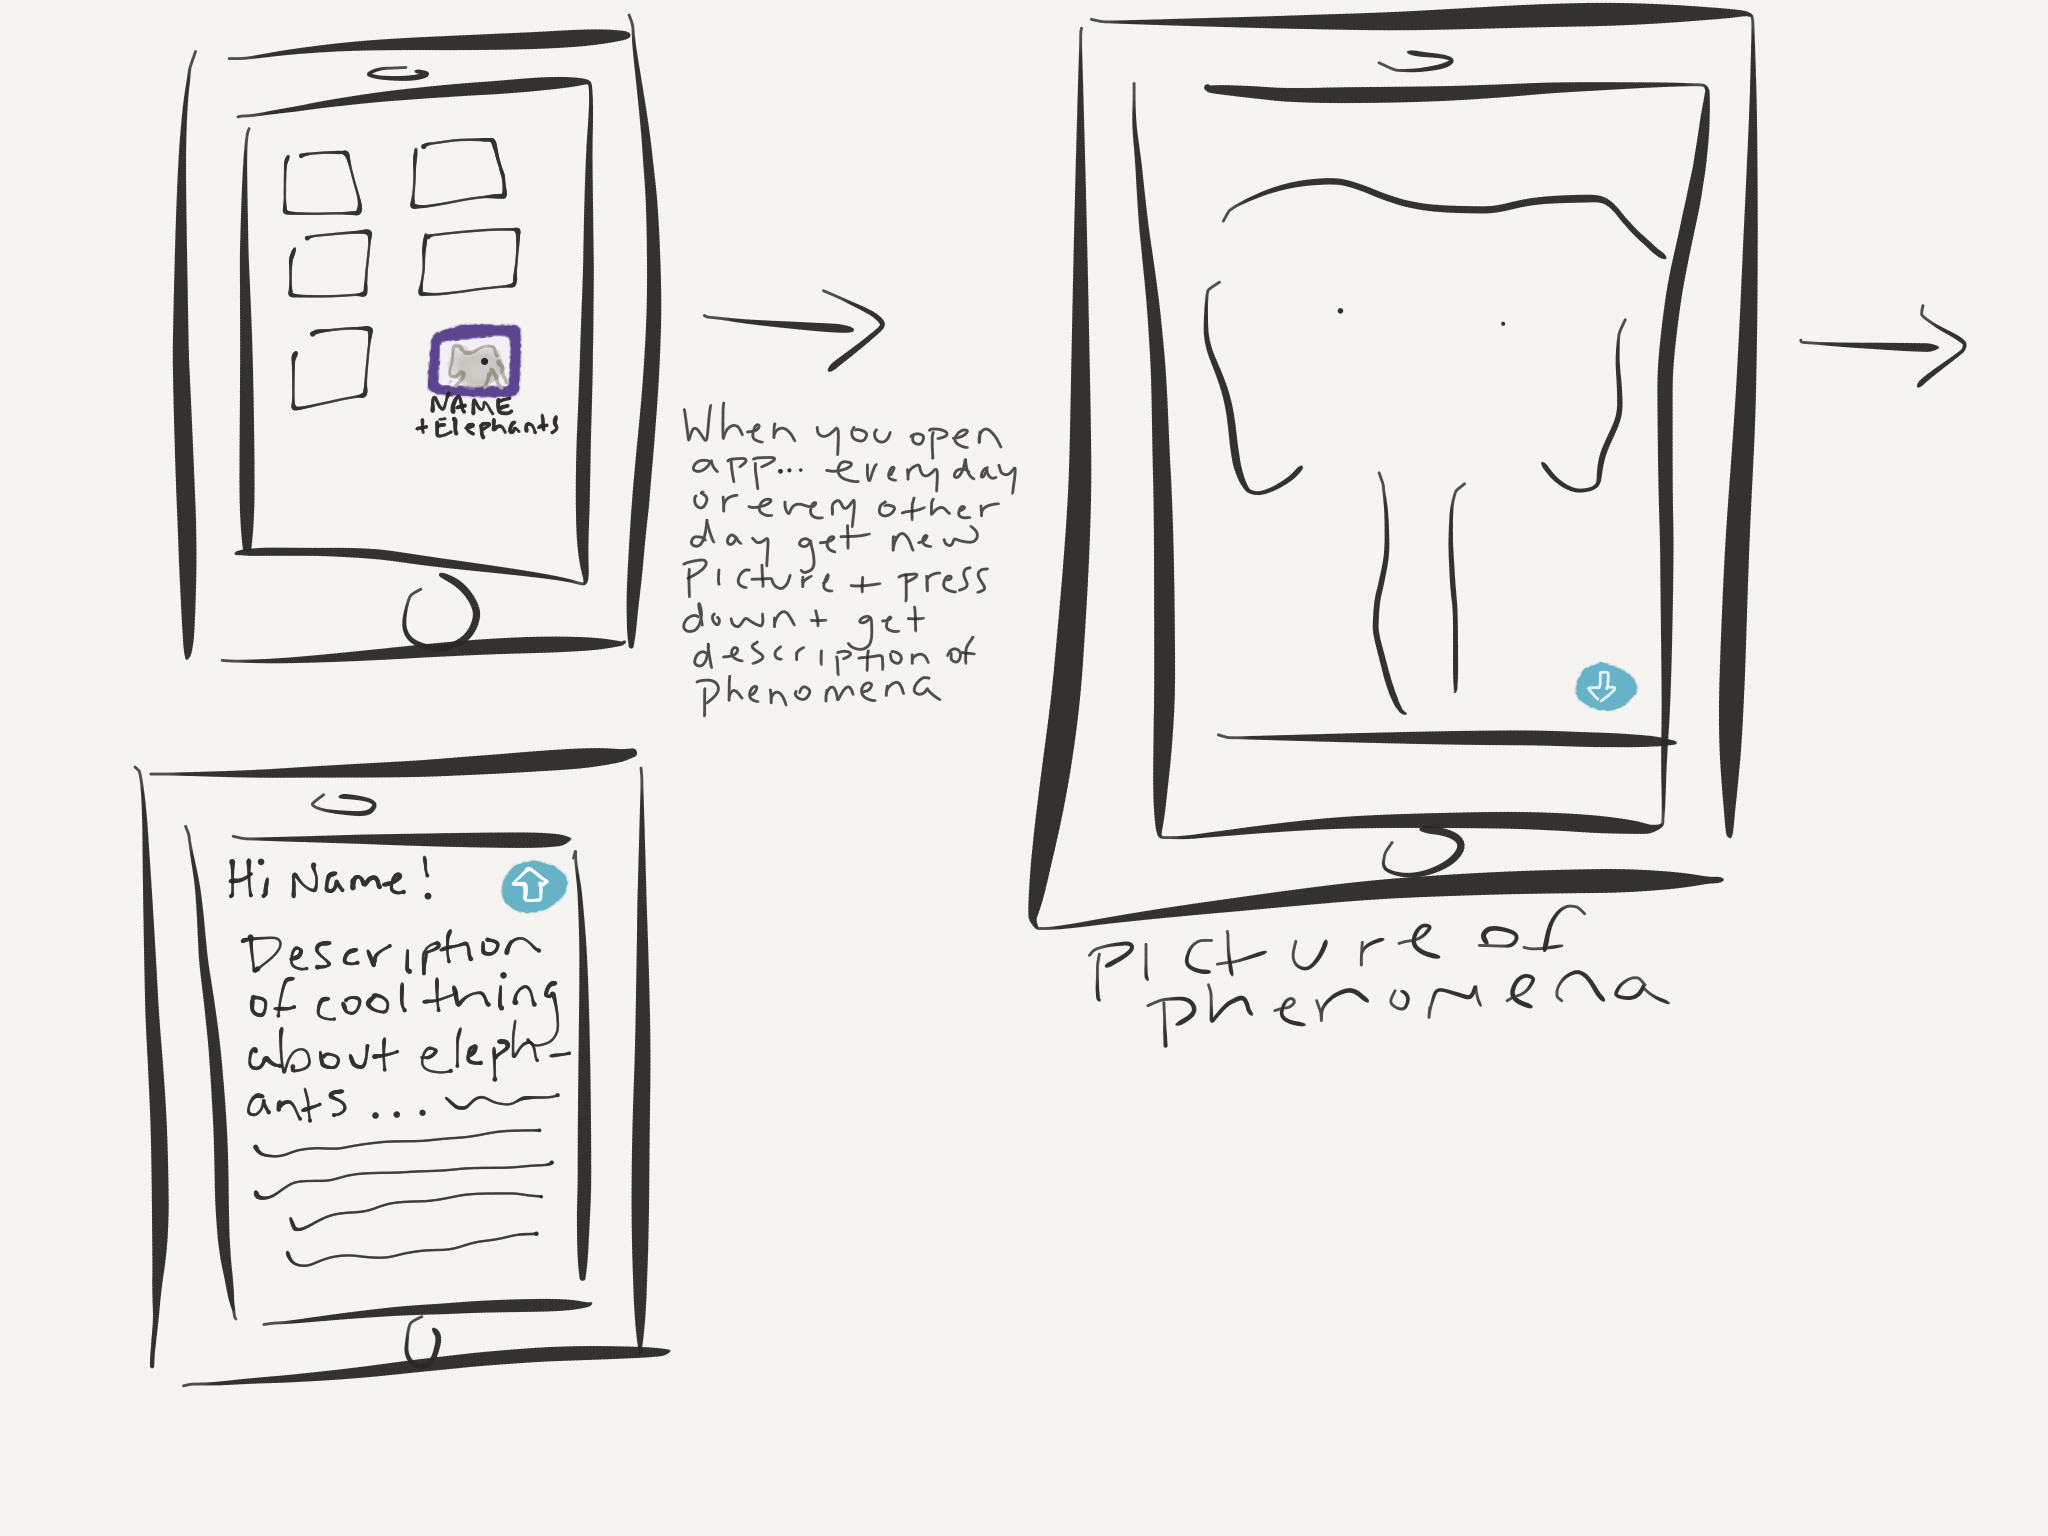 NAME
+ Elephants
When you open
app... every day
or every other
day get new
Picture + press
down + get
description of
phenomena
Picture of
phenomena
Hi Name!
Description
of cool thing
about eleph-
ants ...